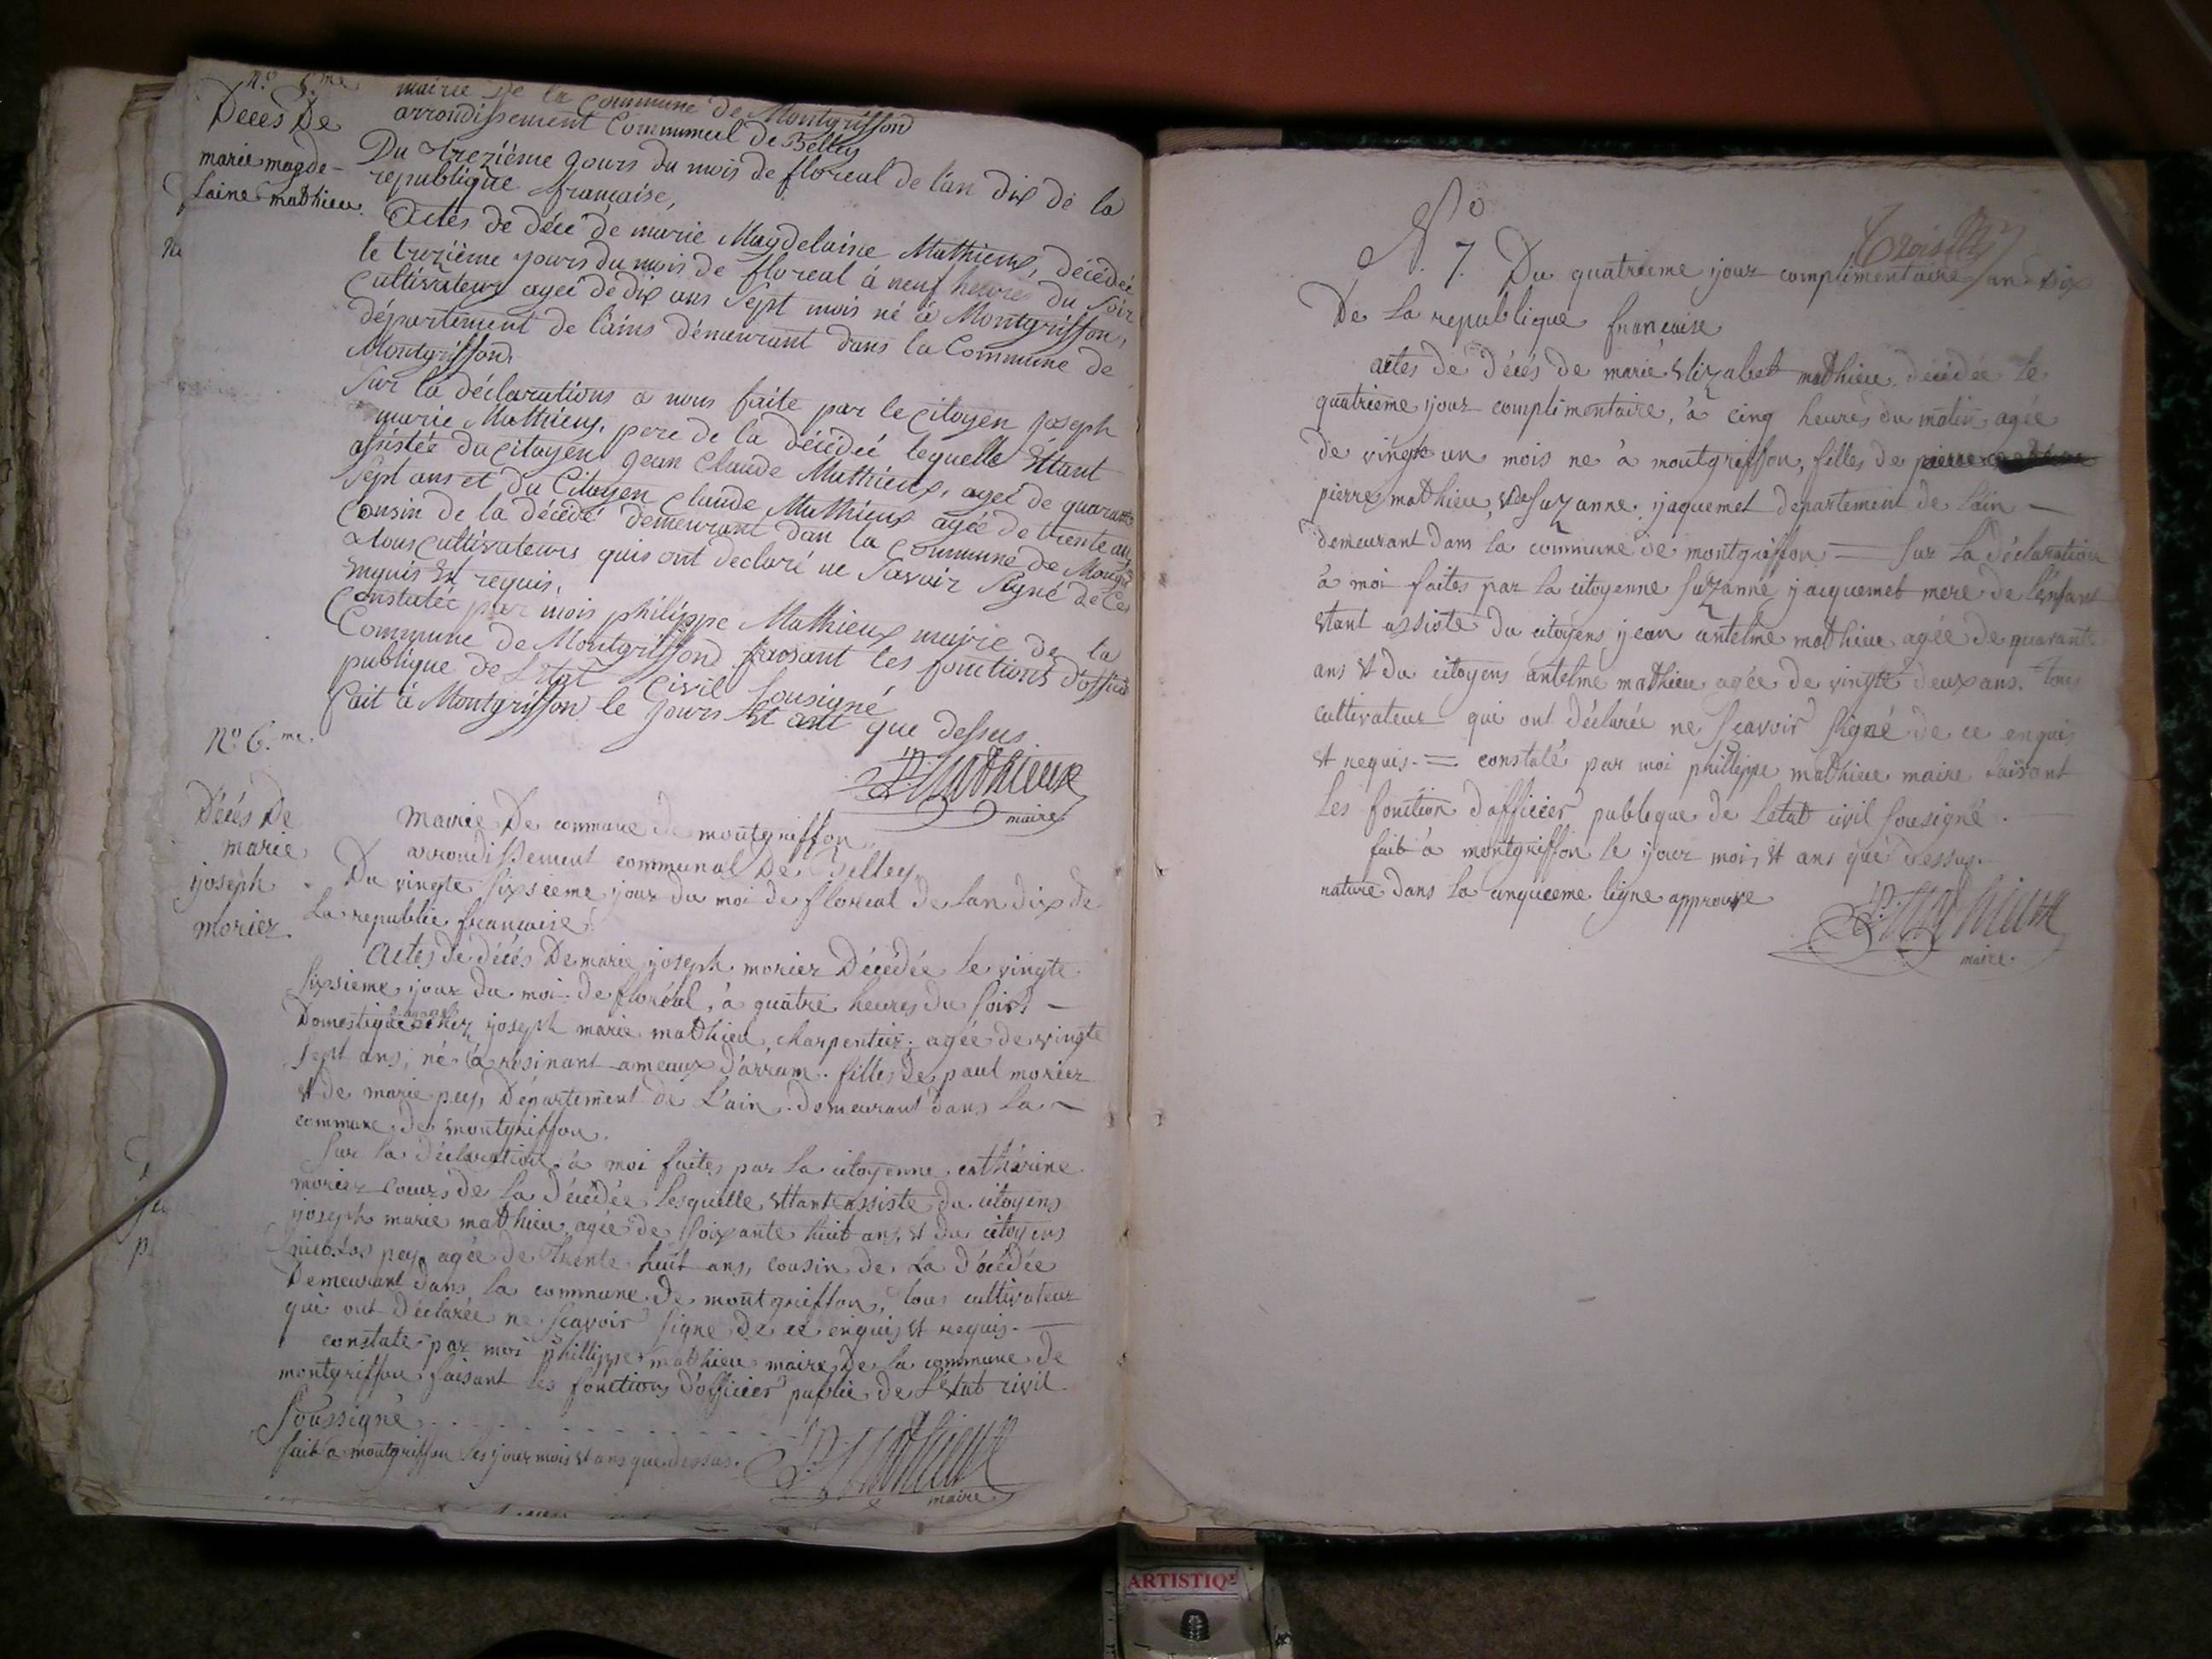 N.º 5.me
Décès De
marie magde-
laine mathieu.
mairie De la Commune de Montgriffon
arrondissement Communeul de Belley
Du trezième Jours du mois de floreal de l'an dix de la
republique française,
Actes de décé de marie Magdelaine Mathieux, décédeé
le trezième yours du mois de floreal à neuf heures du soir
Cultivateur ageé de dix ans sept mois né à Montgriffon,
département de l'ains démeurant dans la Commune de
Montgriffon.
Sur la déclarations a nous faite par le citoyen Joseph
marie Mathieux, pere de la décédeé lequelle Éttant
assistée du Citoyen Jean Claude Mathieux, ageé de quarante
sept ans et du Citoyen Claude Mathieux agée de trente ans
Cousin de la décédé demeurant dan la Commune de
tous cultivateurs quis ont declaré ne savoir signé de ce
enquis Et requis.
Constatée par mois philippe Mathieux maire de la
Commune de Montgriffond faosant les fonctions d'officié
publique de L'Etat Civil sousigné
fait à Montgriffon le Jours Et ant que dessus.
P. Mathieux
maire
N.º 6.me.
Décés De
marie
yoseph
moriez.
mairie De commune de montgriffon
arrondissement communal De Belley
Du vingte sixsieme jour du moi de floreal de lan dix de
La republic françaire.
Actes de décés De marie yoseph moriez Décédée le vingte
sixsieme jour du moi de floréal, à quatre heures du soirs –
Domestique chez yoseph marie mathieu charpentier, agée de vingte
sept ans, né à resinant ameaux d'arram. filles de paul moriez
et de marie pey, Département de L'ain. demeurant dans la –
commune de montgriffon.
Sur la déclaration à moi faites par la citoyenne catherine
moriez soeurs de la décédée lesquelle ettant assiste du citoyens
yoseph marie mathieu agée de soixante huit ans, et du citoyens
nicolas pey, agée de trente huit ans, cousin de La décédée
Demeurant dans la commune de montgriffon, tous cultivateur
qui ont déclarée ne sçavoir signe de ce enquis et requis. –
constate par moi phillippe mathieu maire De la commune de
montgriffon faisant les fonctions d'officier public de L'état civil
soussigné
fait à montgriffon les jour mois et ans que dessus.
P. Mathieux
maire
Nº
N. 7. Du quatrieme jour complimentaire an dix
De La republique françaire
actes de décés de marie Elizabet mathieu décédée le
quatrieme jour complimentaire, à cinq heures du matin agée
de vingte un mois ne à montgriffon, filles de pierre
pierre mathieu, et de suzanne jaquemet département de l'ain –
demeurant dans la commune de montgriffon = sur La déclaration
à moi faites par la citoyenne suzanne jacquemet mere de l'enfant
etant assiste du citoyens jean antelme mathieu agée de quarante
ans et du citoyens antelme mathieu agée de vingte deux ans. tous
cultivateur qui ont déclarée ne sçavoir signé de ce enquis
et requis. = constaté par moi phillippe mathieu maire faisant
les fonction d'officier publique de L'etat civil sousigné. –
fait à montgriffon le jour mois et ans que dessus.
rature dans la cinquieme ligne approuve
P. Mathieux
maire.
ARTISTIQ